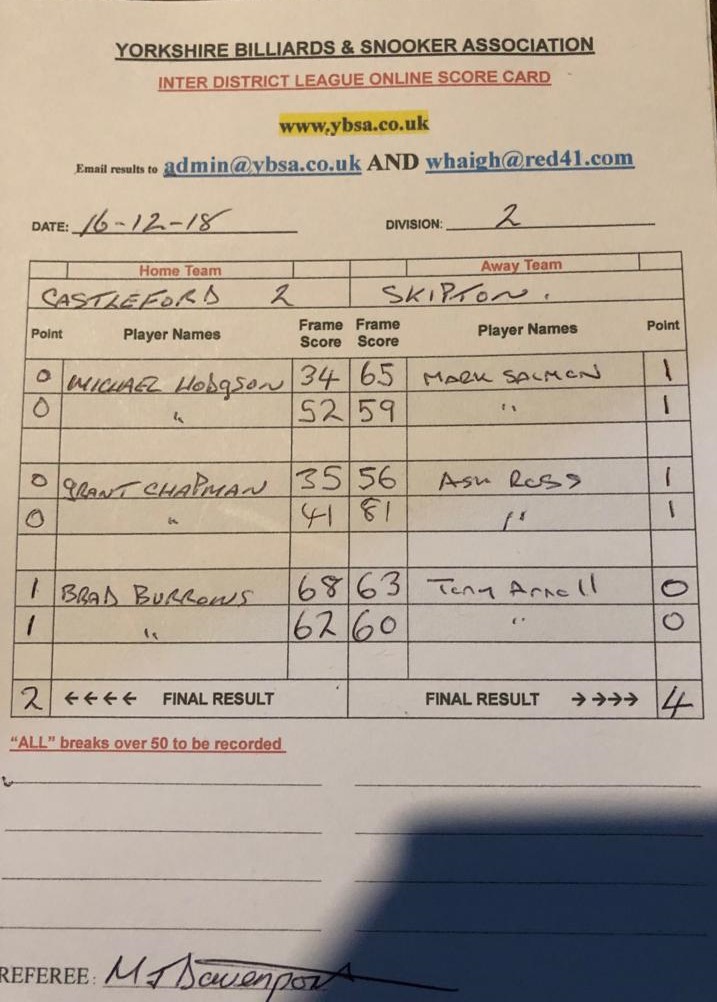 YORKSHIRE BILLIARDS & SNOOKER ASSOCIATION
INTER DISTRICT LEAGUE ONLINE SCORE CARD
www.ybsa.co.uk
Email results to admin@ybsa.co.uk AND whaigh@red41.com
DATE: 16-12-18 DIVISION: 2
Home Team Away Team
CASTLEFORD 2 SKIPTON.
Point Player Names Frame Score Frame Score Player Names Point
0 MICHAEL HODGSON 34 65 MARK SALMON 1
0 " 52 59 " 1
0 GRANT CHAPMAN 35 56 ASH ROSS 1
0 " 41 81 " 1
1 BRAD BURROWS 68 63 Tony Arnell 0
1 " 62 60 " 0
2 ←←←← FINAL RESULT FINAL RESULT →→→→ 4
"ALL" breaks over 50 to be recorded
REFEREE: M J Davenport